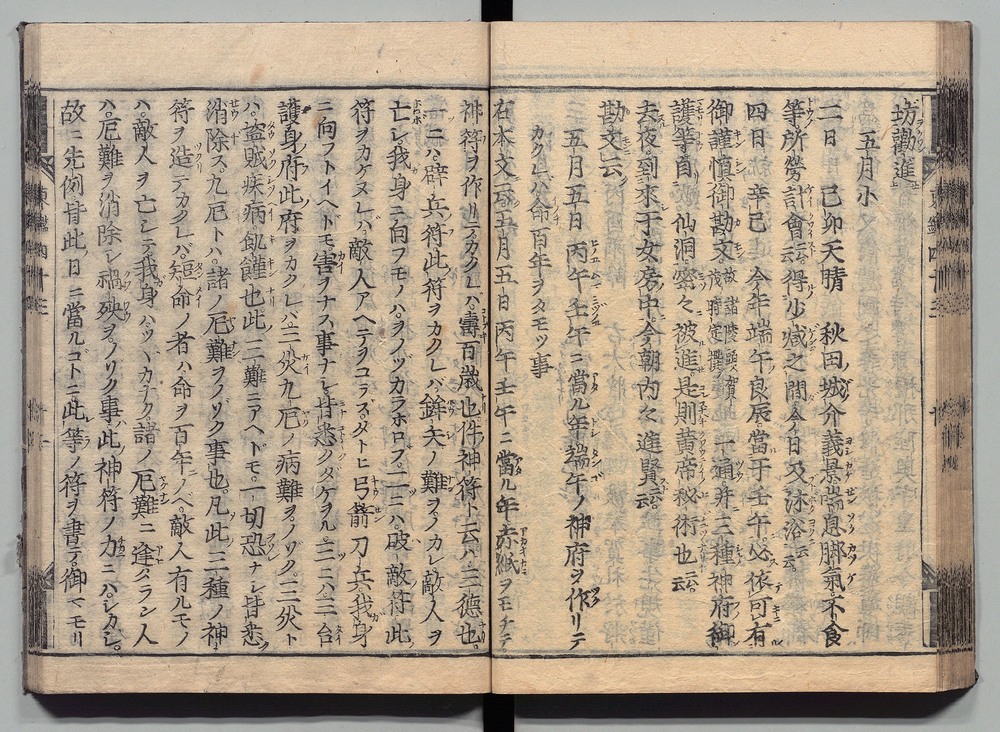 坊勸進
五月小
二日 己卯天晴 秋田城介義景喘息脚氣不食
等所勞計會云云得少減之間今日又沐浴云云
四日 辛巳 今年端午良辰當于壬午必依可有
御謹慎御勘文 一通并三種神府御
護等自 仙洞密々被進是則黄帝秘術也云云
去夜到來于女房中今朝内々進覽云云
勘文云
五月五日丙午壬午ニ當ル年端午ノ神府ヲ作リテ
カクレハ命百年ヲタモツ事
右本文云五月五日丙午壬午ニ當ル年赤紙ヲモチテ
神符ヲ作リテカクレハ壽百歳也件神符ト云ハ三德也
一ニハ辟兵符此符ヲカクレハ鉾矢ノ難ヲノカレ敵人ヲ
亡シ我身ニ向フモノハヲノツカラホロフ二ニハ破敵符此
符ヲカケヌレハ敵人アヘテヲコラスタトヒ弓箭刀兵我身
ニ向フトイヘトモ害ヲナス事ナシ皆悉クタケヲル三ニハ三台
護身府此府ヲカクレハ三災九厄ノ病難ヲノソク三災ト
ハ盗賊疾病飢饉也此三難ニアヘトモ一切恐ナシ皆悉
消除ス九厄トハ諸ノ厄難ヲノソク事也凡此三種ノ神
符ヲ造テカクレハ短命ノ者ハ命ヲ百年ノヘ敵人有ルモノ
ハ敵人ヲ亡シテ我身ハツヽカナク諸ノ厄難ニ逢タラン人
ハ厄難ヲ消除シ禍殃ヲノソク事此神符ノ力ニハシカシ
故ニ先例皆此日ニ當ルコトニ此等ノ符ヲ書テ御マモリ
東鑑四十三